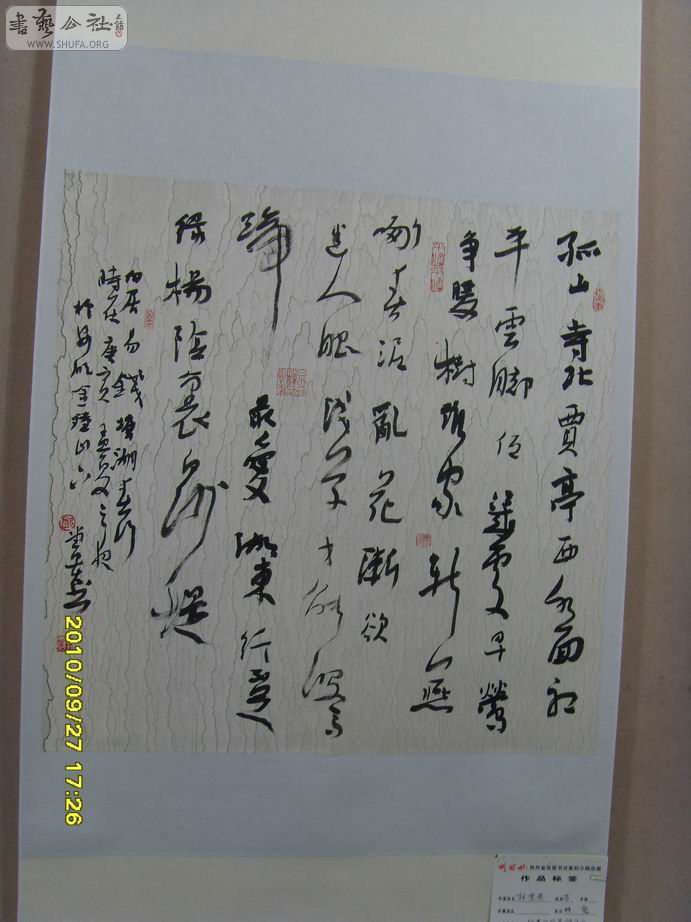 書藝公社
WWW.SHUFA.ORG
孤山寺北賈亭西水面初
平雲腳低幾處早鶯
争暖樹誰家新燕
啄春泥亂花漸欲
迷人眼淺草才能没馬
蹄
最愛湖東行不足
绿楊陰裏白沙堤
白居易錢塘湖春行
時在庚寅孟夏之夜
2010/09/27 17:26
作品标签